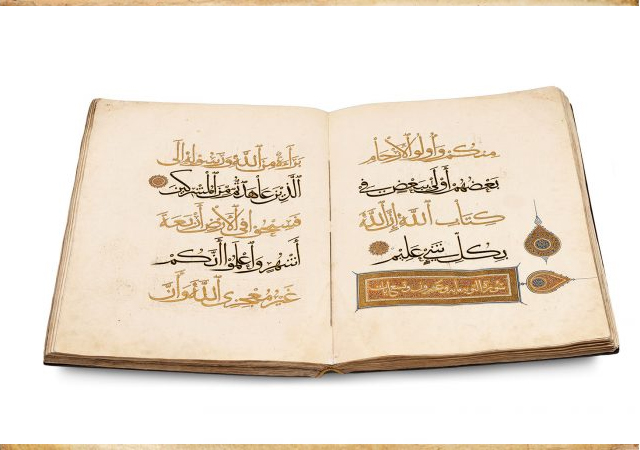 منكم وأولوا الأرحام
بعضهم أولى ببعض في
كتاب الله إن الله
بكل شيء عليم
سورة التوبة مائة وعشرون وتسع آيات
براءة من الله ورسوله إلى
الذين عاهدتم من المشركين
فسيحوا في الأرض أربعة
أشهر واعلموا أنكم
غير معجزي الله وأن